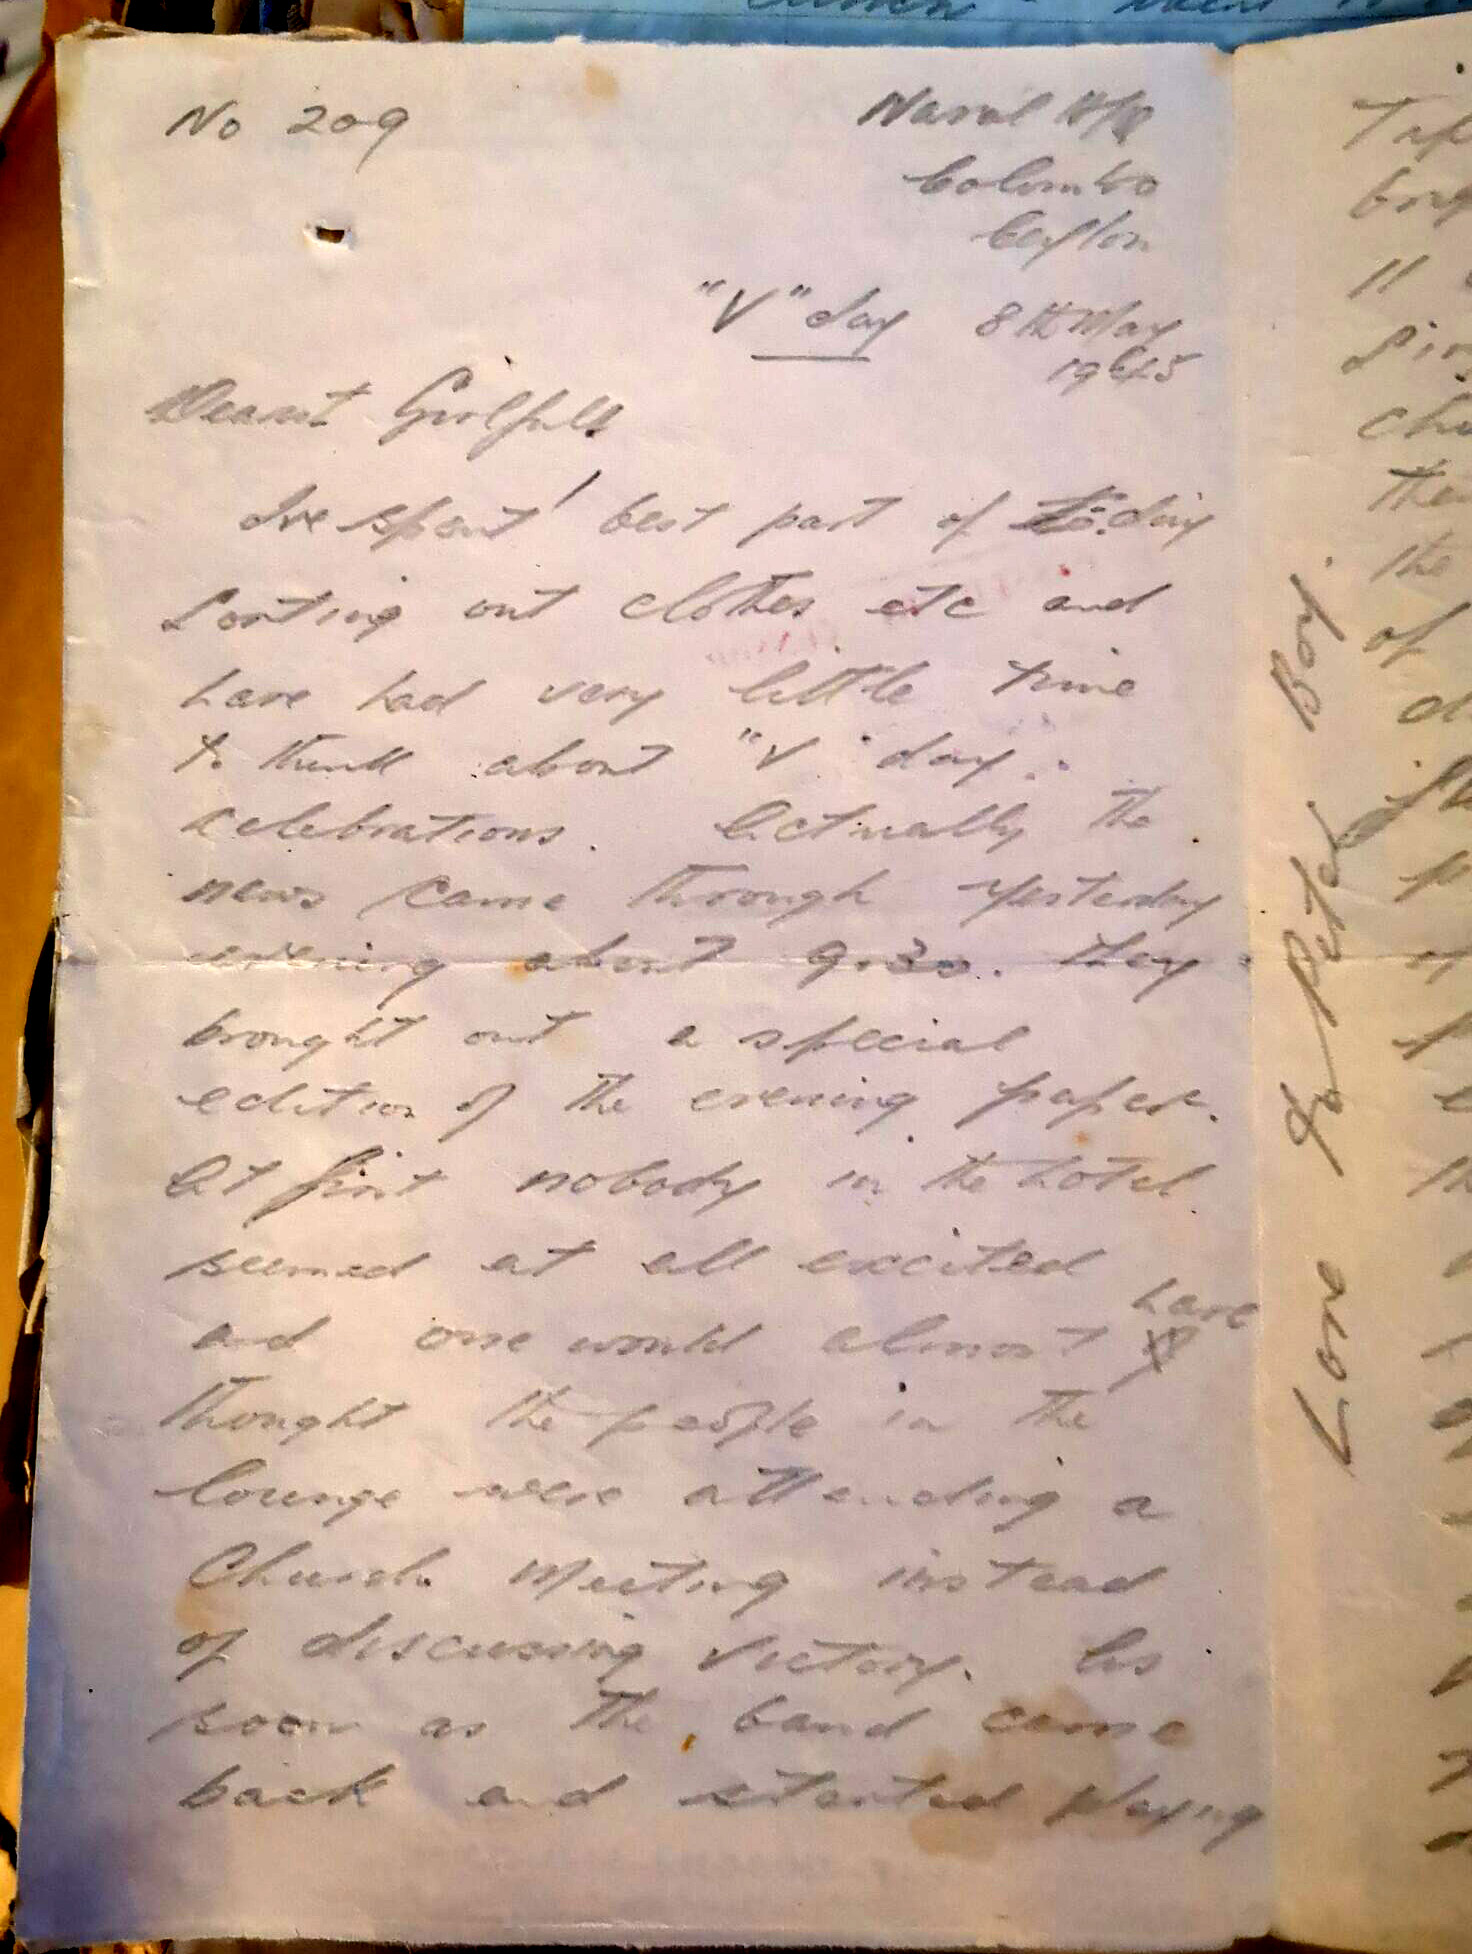 No 209
Naval H/Q
Colombo
Ceylon
"V" day 8th May
1945
Dearest
I've spent best part of to-day
sorting out clothes etc and
have had very little time
to think about "V" day
celebrations. Actually the
news came through yesterday
evening about 9.30. They
brought out a special
edition of the evening paper.
At first nobody in the hotel
seemed at all excited
and one would almost have
thought the people in the
lounge were attending a
Church Meeting instead
of discussing victory. As
soon as the band came
back and started playing
Love to Peter Boy.
11
the
of